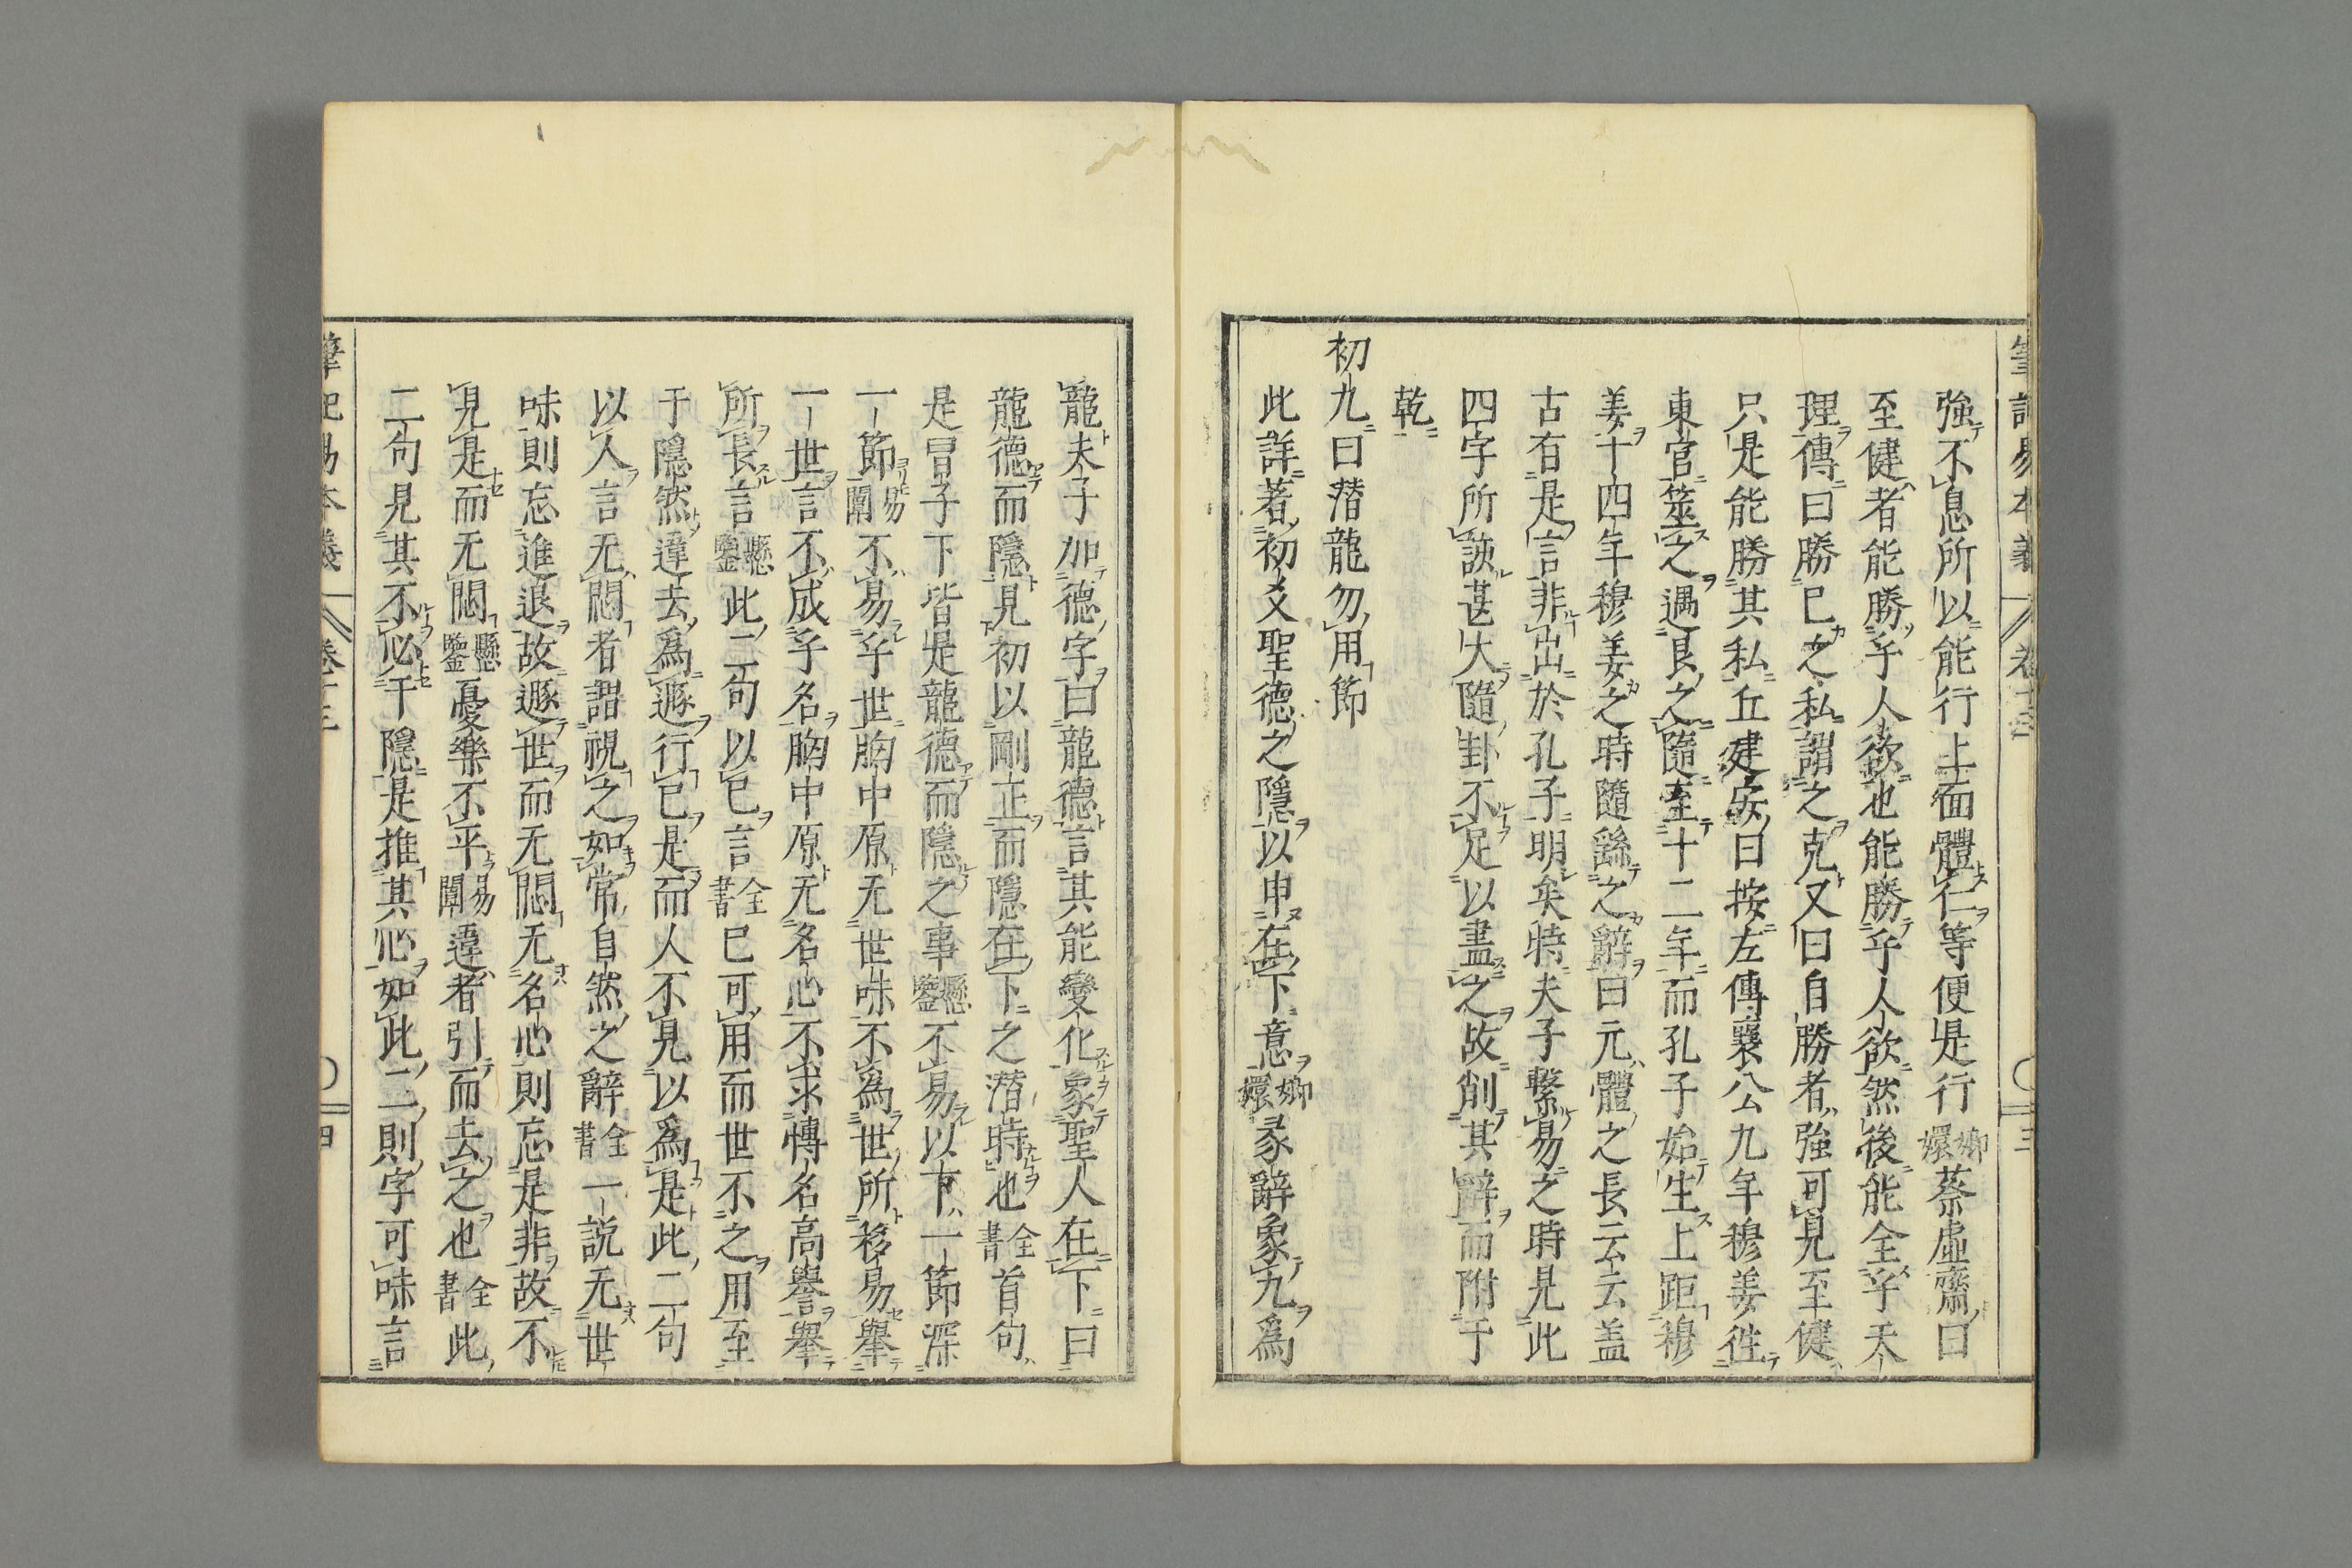 筆記易本義 卷十三 三
強不息所以能行上面體仁等便是行嫏嬛蔡虛齋曰
至健者能勝乎人欲也能勝乎人欲然後能全乎天
理傳曰勝己之私謂之克又曰自勝者強可見至健
只是能勝其私丘建安曰按左傳襄公九年穆姜徃
東宮筮之遇艮之隨至十二年而孔子始生上距穆
姜十四年穆姜之時隨繇之辭曰元體之長云云盖
古有是言非出於孔子明矣特夫子繫易之時見此
四字所誤甚大隨卦不足以盡之故削其辭而附于
乾
初九曰潜龍勿用節
此詳著初爻聖德之隱以申在下意嫏嬛彖辭象九爲
龍夫子加德字曰龍德言其能變化象聖人在下曰
龍德而隱見初以剛正而隱在下之潜時也全書首句
是冒子下皆是龍德而隱之事懸鑒不易以下一節深
一節易闡不易乎世胸中原无世味不爲世所移易舉
一世言不成乎名胸中原无名心不求慱名高譽舉
所長言懸鑒此二句以已言全書已可用而世不之用至
于隱然違去爲遯行已是而人不見以爲是此二句
以人言无悶者謂視之如常自然之辭全書一說无世
味則忘進退故遯世而无悶无名心則忘是非故不
見是而无悶懸鑒憂樂不平易闡違者引而去之也全書此
二句見其不必干隱是推其心如此二則字可味言
筆記易本義 卷十三 四